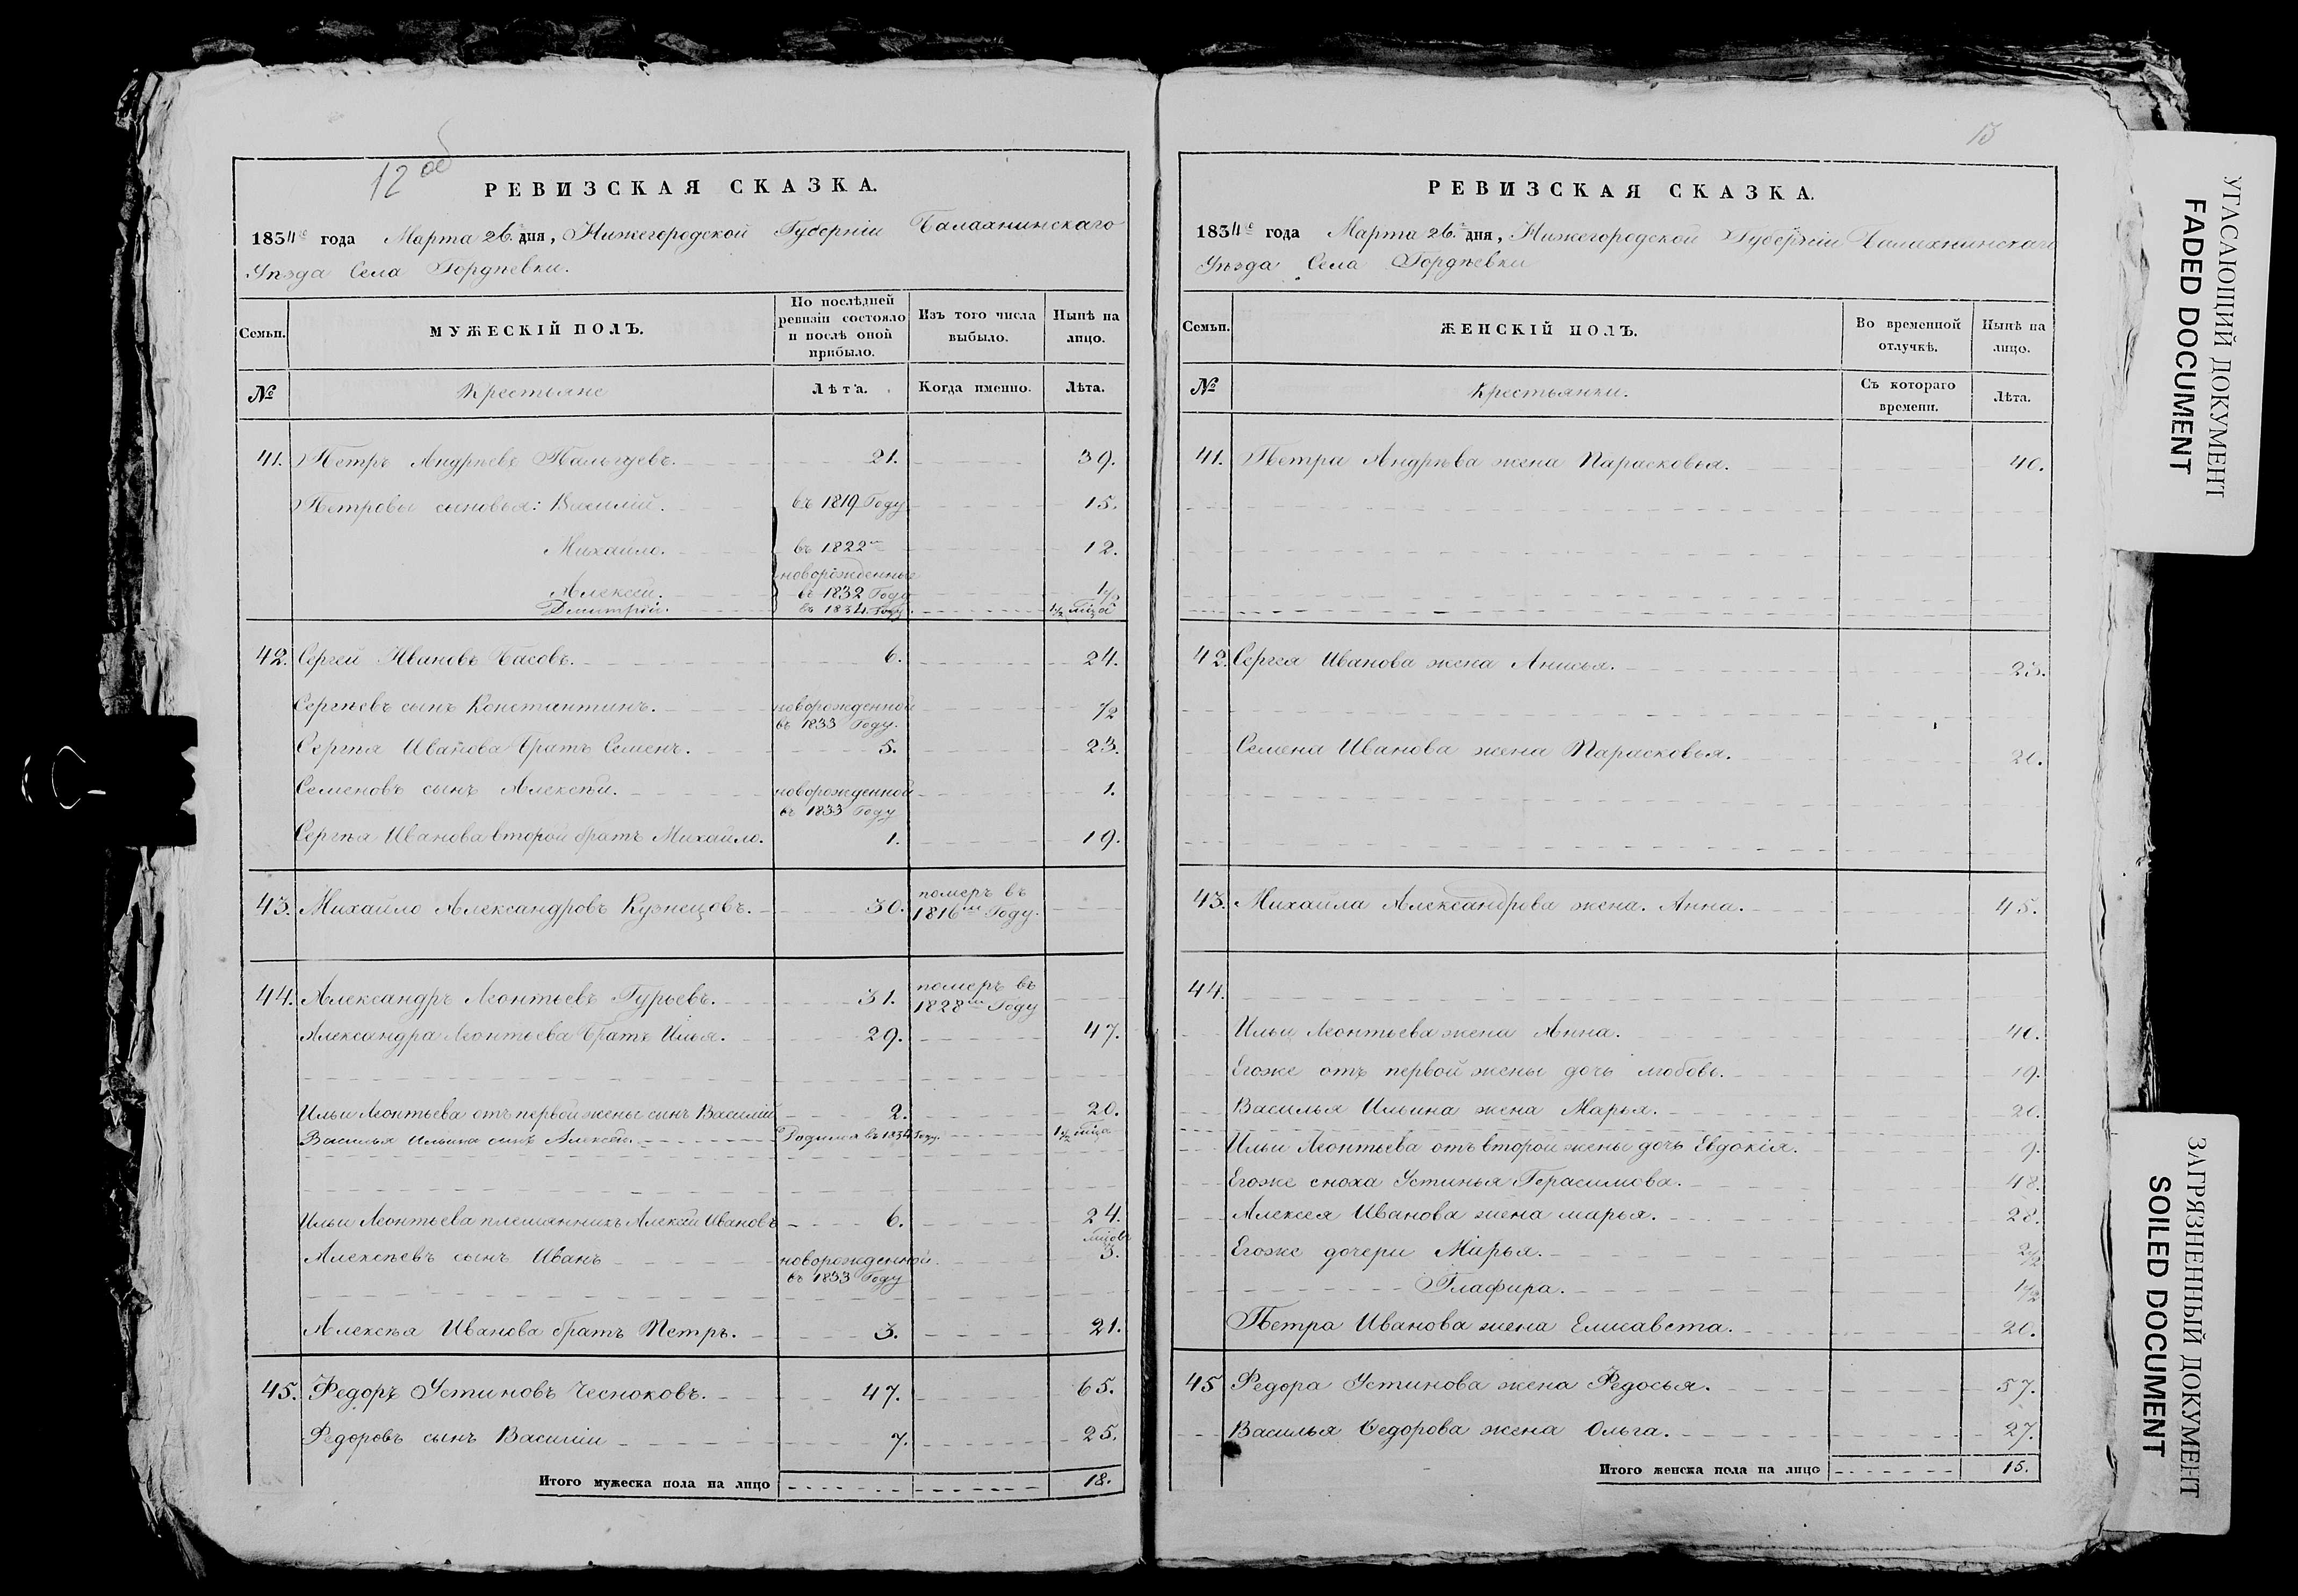 12 об
РЕВИЗСКАЯ СКАЗКА.
1834го года Марта 26го дня, Нижегородской Губерніи Балахнинскаго
Уѣзда Села Гордѣевки.
Семьи. МУЖЕСКІЙ ПОЛЪ. По послѣдней ревизіи состояло и послѣ оной прибыло. Изъ того числа выбыло. Нынѣ на лицо.
№ Крестьяне Лѣта. Когда именно. Лѣта.
41. Петръ Андрѣевъ Пальгуевъ. 21. 39.
Петровы сыновья: Василій. въ 1819 Году 15.
Михайло. въ 1822м 12.
новорожденные
Алексей. въ 1832 Году 1 1/2
Дмитрій. въ 1834 Году 1 1/2 мѣсца
42. Сергей Ивановъ Басовъ. 6. 24.
Сергѣевъ сынъ Константинъ. новорожденной въ 1833 Году. 1/2
Сергѣя Иванова братъ Семенъ. 5. 23.
Семеновъ сынъ Алексѣй. новорожденной въ 1833 Году 1.
Сергѣя Иванова второй братъ Михайло. 1. 19.
43. Михайло Александровъ Кузнецовъ. 30. померъ въ 1816м Году.
44. Александръ Леонтьевъ Гурьевъ. 31. померъ въ 1828м Году
Александра Леонтьева братъ Илья. 29. 47.
Ильи Леонтьева отъ первой жены сынъ Василій 2. 20.
Василья Ильина сынъ Алексей. Родился въ 1834 Году. 1 1/2 мѣсца
Ильи Леонтьева племянникъ Алексѣй Ивановъ 6. 24.
Алексѣевъ сынъ Иванъ новорожденной въ 1833 Году 3. мѣсцовъ
Алексѣя Иванова братъ Петръ. 3. 21.
45. Федоръ Устиновъ Чесноковъ. 47. 65.
Федоровъ сынъ Василій 7. 25.
Итого мужеска пола на лицо 18.
РЕВИЗСКАЯ СКАЗКА.
1834го года Марта 26го дня, Нижегородской Губерніи Балахнинскаго
Уѣзда Села Гордѣевки
Семьи. ЖЕНСКІЙ ПОЛЪ. Во временной отлучкѣ. Нынѣ на лицо.
№ Крестьянки. Съ котораго времени. Лѣта.
41. Петра Андрѣва жена Парасковья. 40.
42. Сергея Иванова жена Анисья. 23.
Семена Иванова жена Парасковья. 20.
43. Михайла Александрова жена. Анна. 45.
44.
Ильи Леонтьева жена Анна. 40.
Егоже отъ первой жены дочь любовь. 19.
Василья Ильина жена Марья. 20.
Ильи Леонтьева отъ второй жены дочь Евдокія. 9.
Егоже сноха Устинья Герасимова. 48.
Алексея Иванова жена марья. 28.
Егоже дочери Марья. 2 1/2
Глафира. 1 1/2
Петра Иванова жена Елисавета. 20.
45 Федора Устинова жена Федосья. 57.
Василья Федорова жена Ольга. 27.
Итого женска пола на лицо 15.
УГАСАЮЩИЙ ДОКУМЕНТ
FADED DOCUMENT
ЗАГРЯЗНЕННЫЙ ДОКУМЕНТ
SOILED DOCUMENT